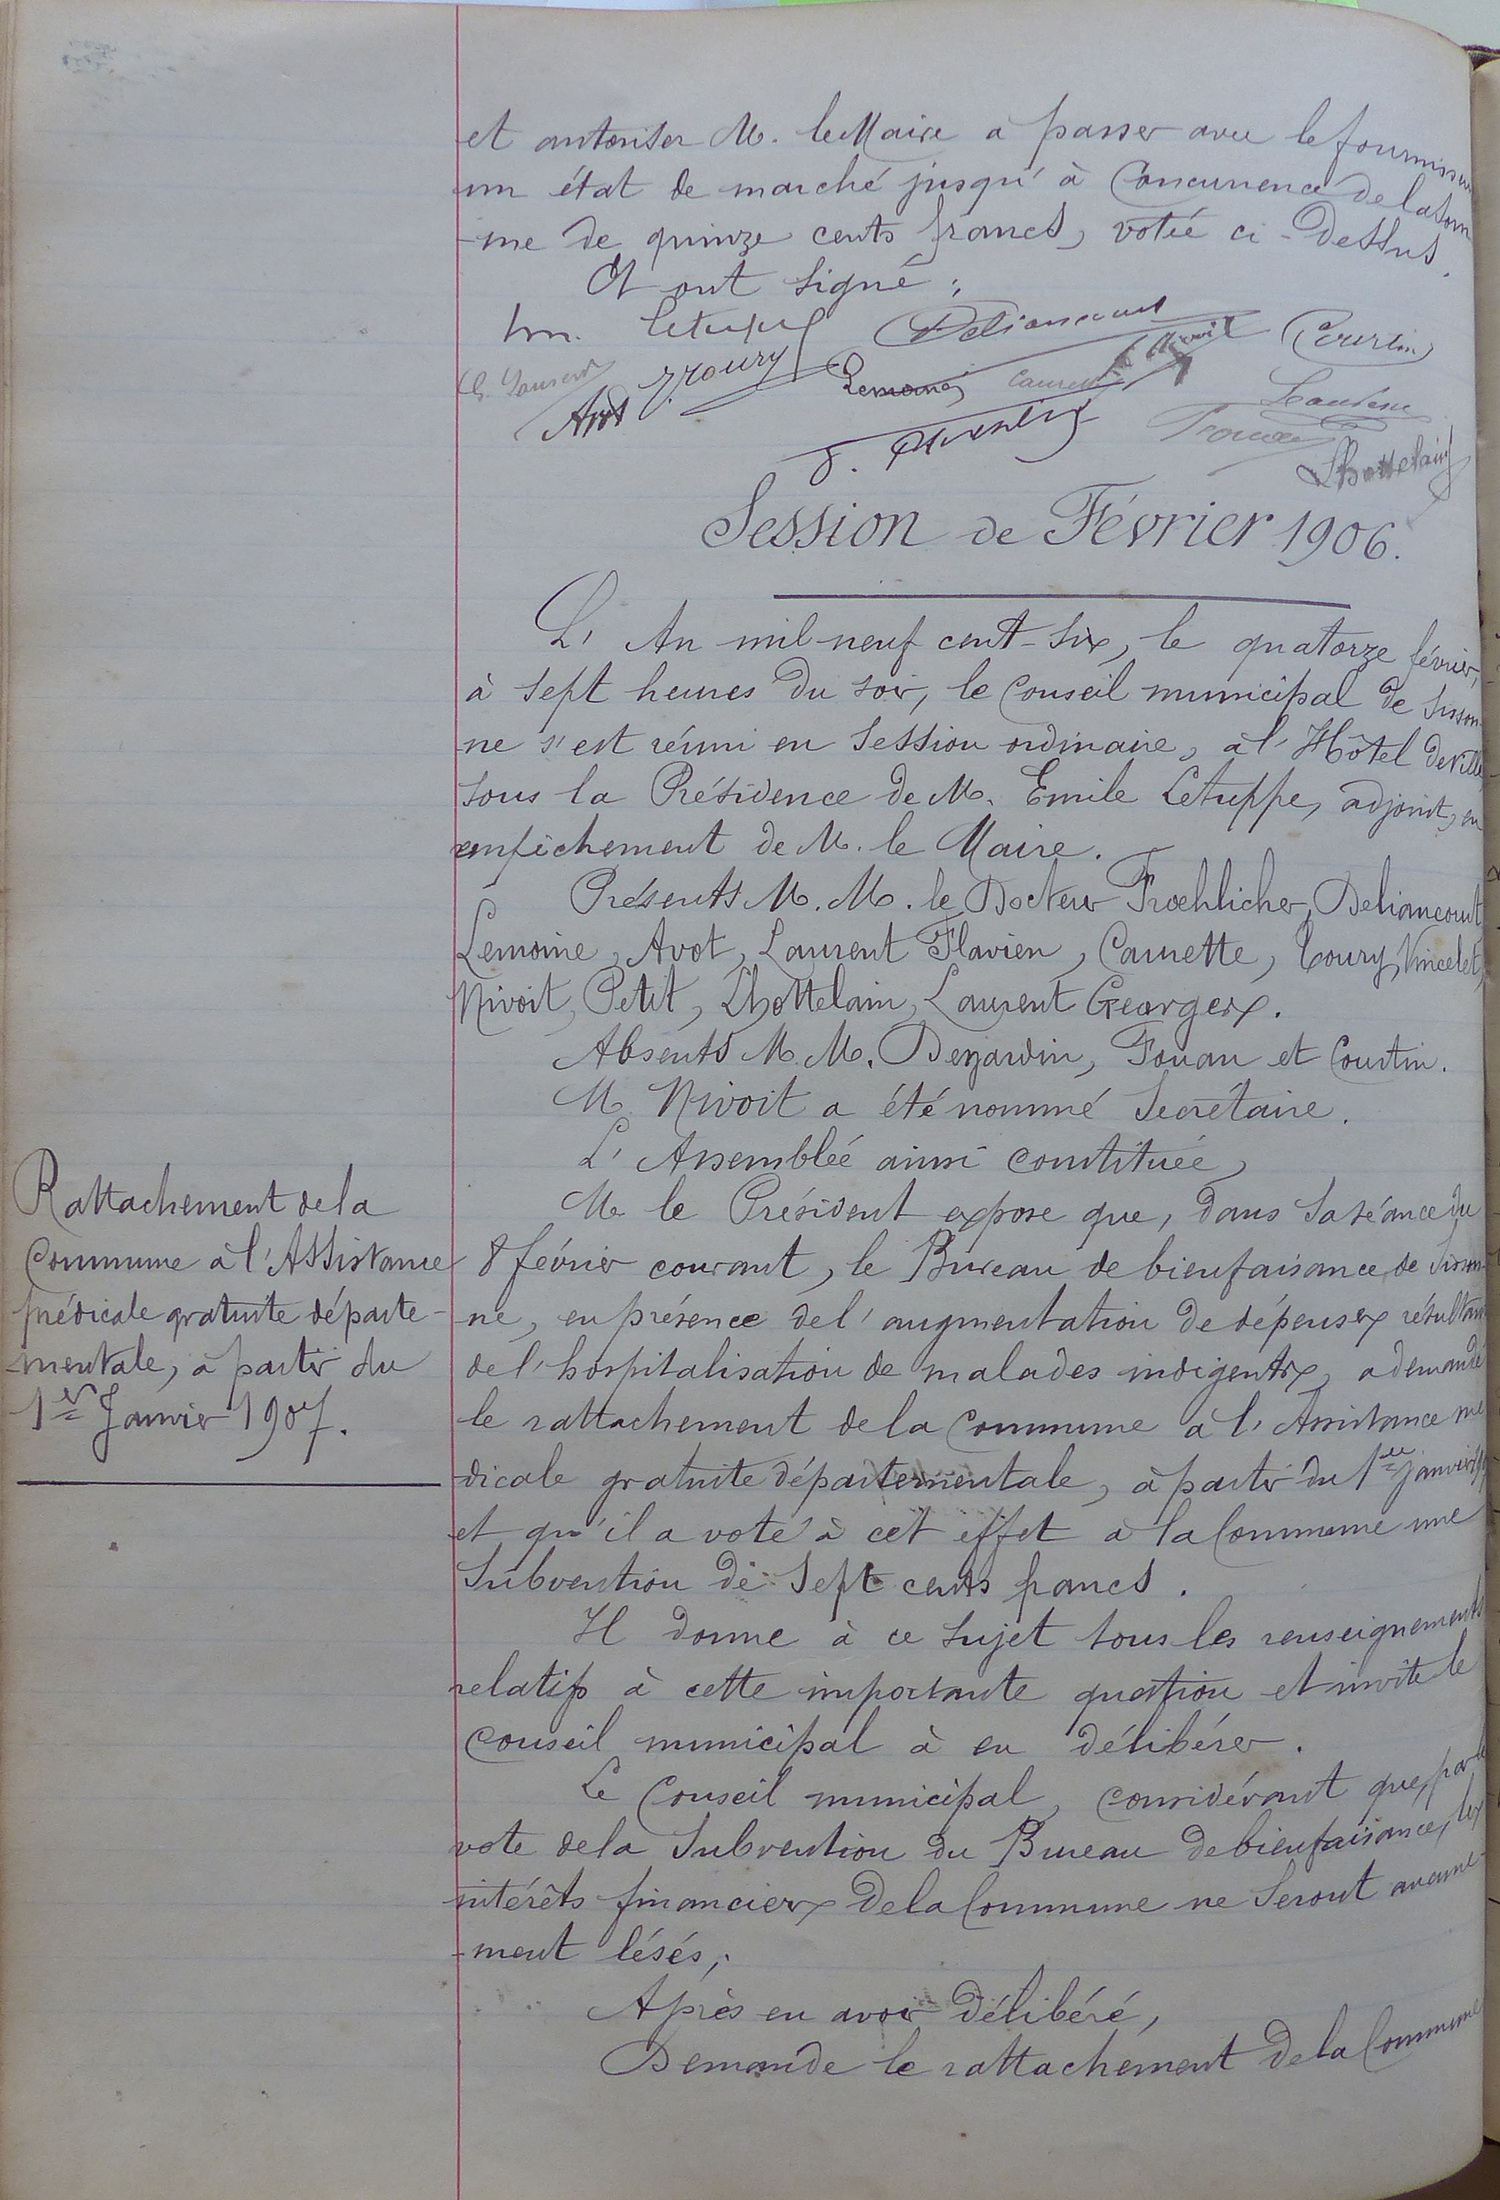 et autoriser M. le Maire à passer avec le fournisseur
un état de marché jusqu'à concurrence de la som
-me de quinze cents francs, votée ci-dessus.
Et ont signé :
Em. Letuppe Deliancourt Courtin
G. Laurent Avot Toury Lemoine Laurent Nivoit
Lhottelain
Session de Février 1906.
L'An mil-neuf cent-six, le quatorze février,
à sept heures du soir, le Conseil municipal de Sisson-
ne s'est réuni en session ordinaire, à l'Hôtel de Ville
sous la Présidence de M. Emile Letuppe, adjoint, en
empêchement de M. le Maire.
Présents M. M. le Docteur Froehlicher, Deliancourt,
Lemoine, Avot, Laurent Flavien, Caurette, Toury, Vincelet,
Nivoit, Petit, Lhottelain, Laurent Georges.
Absents M. M. Desjardin, Fouan et Courtin.
M. Nivoit a été nommé Secrétaire.
L'Assemblée ainsi constituée,
Rattachement de la
Commune à l'Assistance
médicale gratuite départe-
-mentale, à partir du
1er Janvier 1907.
M. le Président expose que, dans sa séance du
8 février courant, le Bureau de bienfaisance de Sisson-
ne, en présence de l'augmentation de dépenses résultant
de l'hospitalisation de malades indigents, a demandé
le rattachement de la Commune à l'Assistance mé
dicale gratuite départementale, à partir du 1er janvier
et qu'il a voté à cet effet à la Commune une
subvention de sept cents francs.
Il donne à ce sujet tous les renseignements
relatifs à cette importante question et invite le
Conseil municipal à en délibérer.
Le Conseil municipal, considérant que, par le
vote de la subvention du Bureau de bienfaisance, les
intérêts financiers de la Commune ne seront aucune-
-ment lésés;
Après en avoir délibéré,
Demande le rattachement de la Commune